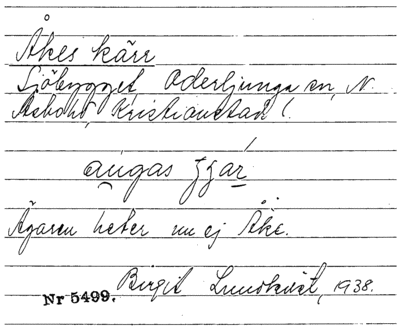 Åkes kärr
Sjöbygget, Oderljunga sn, N.
Åsbohd, Kristianstad l.
augas ʒʒár
Ägaren heter nu ej Åke.
Birgit Lundkvist, 1938.
Nr 5499.